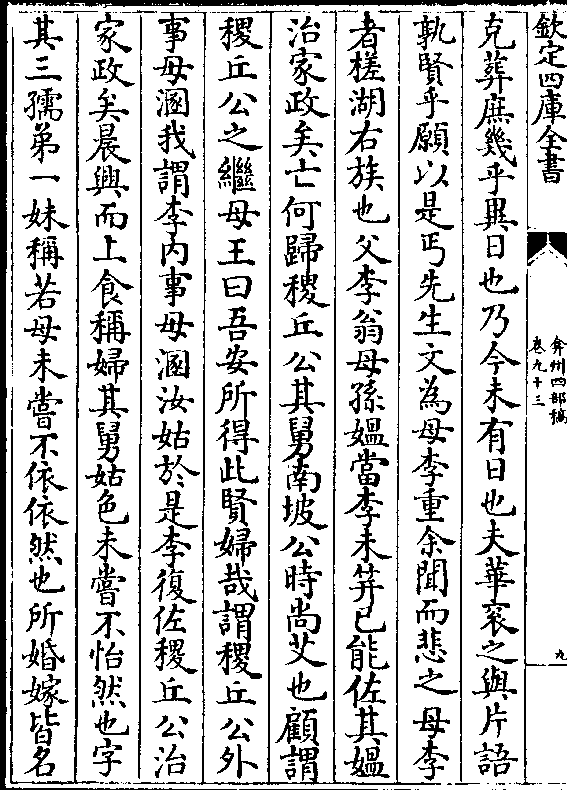 欽定四庫全書
弇州四部稿
卷九十三
九
克葬庶幾乎異日也乃今未有日也夫華衮之與片語
孰賢乎願以是丐先生文為母李重余聞而悲之母李
者槎湖右族也父李翁母孫媼當李未筓已能佐其媼
治家政矣亡何歸稷丘公其舅南坡公時尚艾也顧謂
稷丘公之繼母王曰吾安所得此賢婦哉謂稷丘公外
事毋溷我謂李内事毋溷汝姑於是李復佐稷丘公治
家政矣晨興而上食稱婦其舅姑色未嘗不怡然也字
其三孺弟一妹稱若母未嘗不依依然也所婚嫁皆名